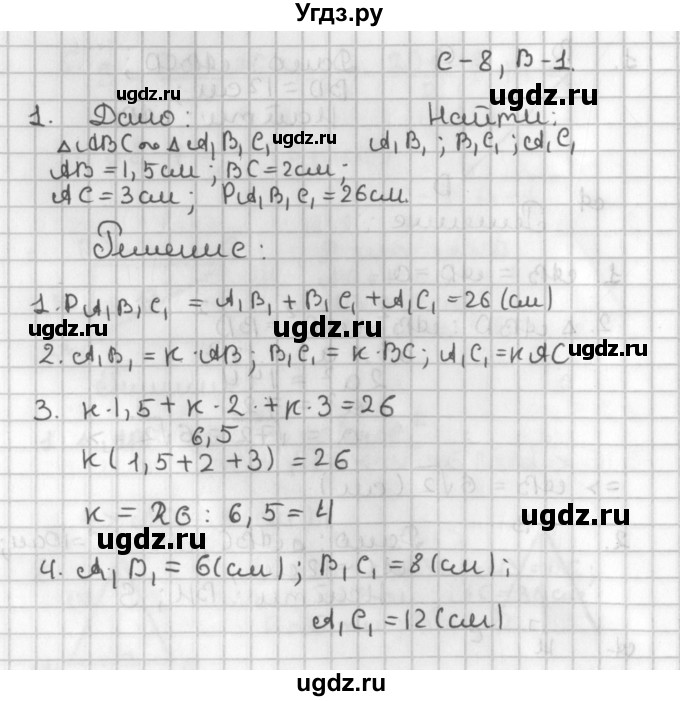 Угдз.ру
С-8, В-1.
ugdz.ru
ugdz.ru
1. Дано: Найти:
△ABC ∾ △A₁B₁C₁ ugdz.ru A₁B₁; B₁C₁; A₁C₁
AB = 1,5 см; BC = 2 см;
AC = 3 см; PA₁B₁C₁ = 26 см.
ugdz.ru
Решение:
1. P A₁B₁C₁ = A₁B₁ + B₁C₁ + A₁C₁ = 26 (см)
ugdz.ru ugdz.ru ugdz.ru
2. A₁B₁ = к · AB; B₁C₁ = к · BC; A₁C₁ = к AC
3. к · 1,5 + к · 2 · + к · 3 = 26
6,5
к (1,5 + 2 + 3) = 26
к = 26 : 6,5 = 4
ugdz.ru ugdz.ru
4. A₁B₁ = 6 (см); B₁C₁ = 8 (см);
A₁C₁ = 12 (см)
ugdz.ru
ugdz.ru